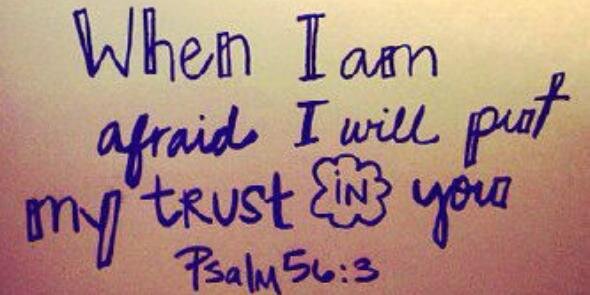 When I am
afraid I will put
my trust IN you
Psalm 56:3